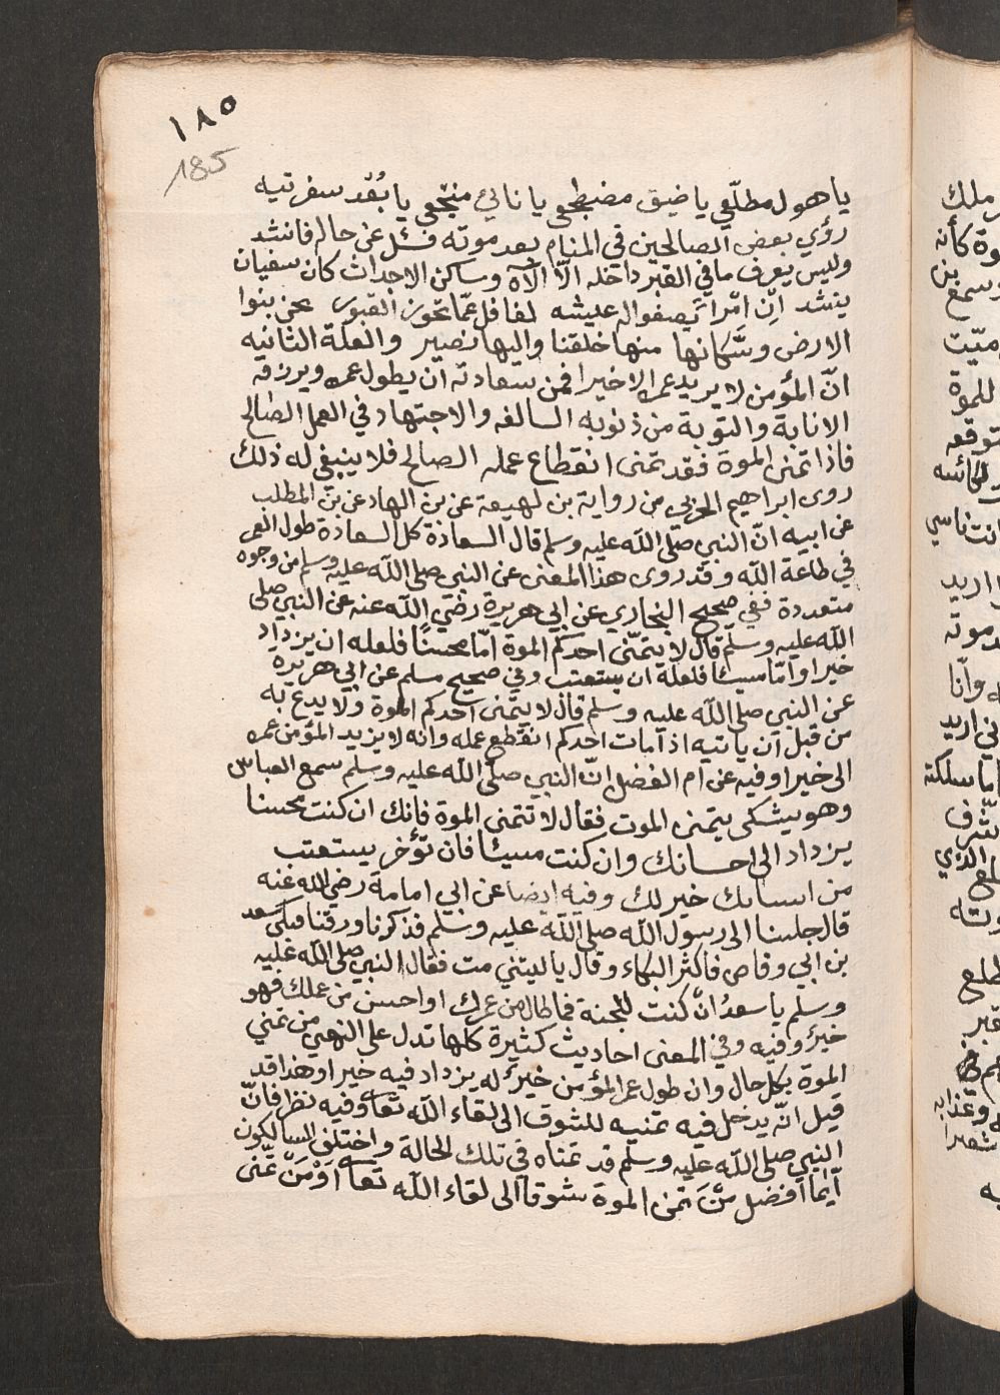 ١٨٥
185
يا هول مطلّعي يا ضيق مضطجعي يا نائي منتجعي يا بُعْد سفرتيه
رؤي بعض الصالحين في المنام بعد موته فسئل عن حاله فانشد
وليس يعرف ما في القبر داخله الّا الآلاه وساكن الاجداث كان سفيان
ينشد انّ امّرأ يصفوا له عليشه لغافل عمّا تحوز القبور نحن بنوا
الارض وسّكانها منها خلقنا واليها نصير والعلة الثانيه
انّ المؤمن لا يريد عمره الا خيرا فمن سعادته ان يطول عمره ويرزقه
الانابة والتوبة من ذنوبه السالفه والاجتهاد في العمل الصالح
فاذا تمنى الموة فقد تمنى انقطاع عمله الصالح فلا ينبغي له ذلك
روى ابراهيم الحربي من رواية بن لهيعة عن بن الهاد عن بن المطلب
عن ابيه انّ النبي صلّى اللّه عليه وسلم قال السعادة كل السعادة طول العمر
في طاعة اللّه وقد روى هذا المعنى عن النبي صلى اللّه عليه وسلم من وجوه
متعددة ففي صحيح البخاري عن ابي هريرة رضي اللّه عنه عن النبي صلى
اللّه عليه وسلّم قال لا يتمنّى احدكم الموة امّا محسنًا فلعله ان يزداد
خيرا وامّا مسيئا فلعله ان يستعتب وفي صحيح مسلم عن ابي هريرة
عن النبي صلى اللّه عليه وسلم قال لا يتمنى احدكم الموة ولا يدع به
من قبل ان ياتيه اذا مات احدكم انقطع عمله وانه لا يزيد المؤمن عمره
الى خيرا وفيه عن ام الفضل انّ النبي صلّى اللّه عليه وسلم سمع العباس
وهو يشكى يتمنى الموت فقال لا تتمنى الموة فانك ان كنت محسنا
يزداد الى احسانك وان كنت مسيئا فان تؤخر يستعتب
من اساتك خير لك وفيه ايضا عن ابي امامة رضي الله عنه
قال جلسنا الى رسول اللّه صلى اللّه عليه وسلم فذكرنا ورقّنا فبكى سعد
بن ابي وقاص فاكثر البكاء وقال يا ليتني مت فقال النبي صلى اللّه عليه
وسلم يا سعدُ انّ كنت للجنة فما طال من عمرك او احسن من عملك فهو
خيرٌ وفيه وفي المعنى احاديث كثيرة كلها تدل على النهي من تمني
الموة بكل حال وان طول عمر المؤمن خيرٌ له يزداد فيه خيرا وهذا قد
قيل انّه يدخل فيه تمنيه للشوق الى لقاء اللّه تعا وفيه نظر فانّ
النبي صلى اللّه عليه وسلم قد تمناه في تلك الحالة واختلف السالكون
آيما افضل مَنّ تمنى الموة شوقا الى لقاء اللّه تعا اوْ مَنْ تمّنى